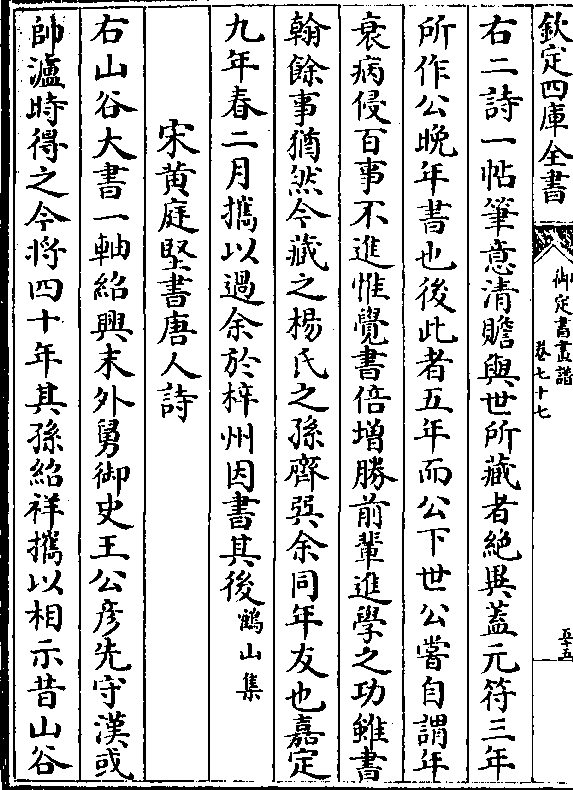 欽定四庫全書
御定書畫譜
卷七十七
五十五
右二詩一帖筆意清贍與世所藏者絶異蓋元符三年
所作公晚年書也後此者五年而公下世公嘗自謂年
衰病侵百事不進惟覺書倍增勝前輩進學之功雖書
翰餘事猶然今藏之楊氏之孫齊㒷余同年友也嘉定
九年春二月攜以過余於梓州因書其後鶴山集
宋黄庭堅書唐人詩
右山谷大書一軸紹興末外舅御史王公彦先守漢或
帥瀘時得之今將四十年其孫紹祥攜以相示昔山谷